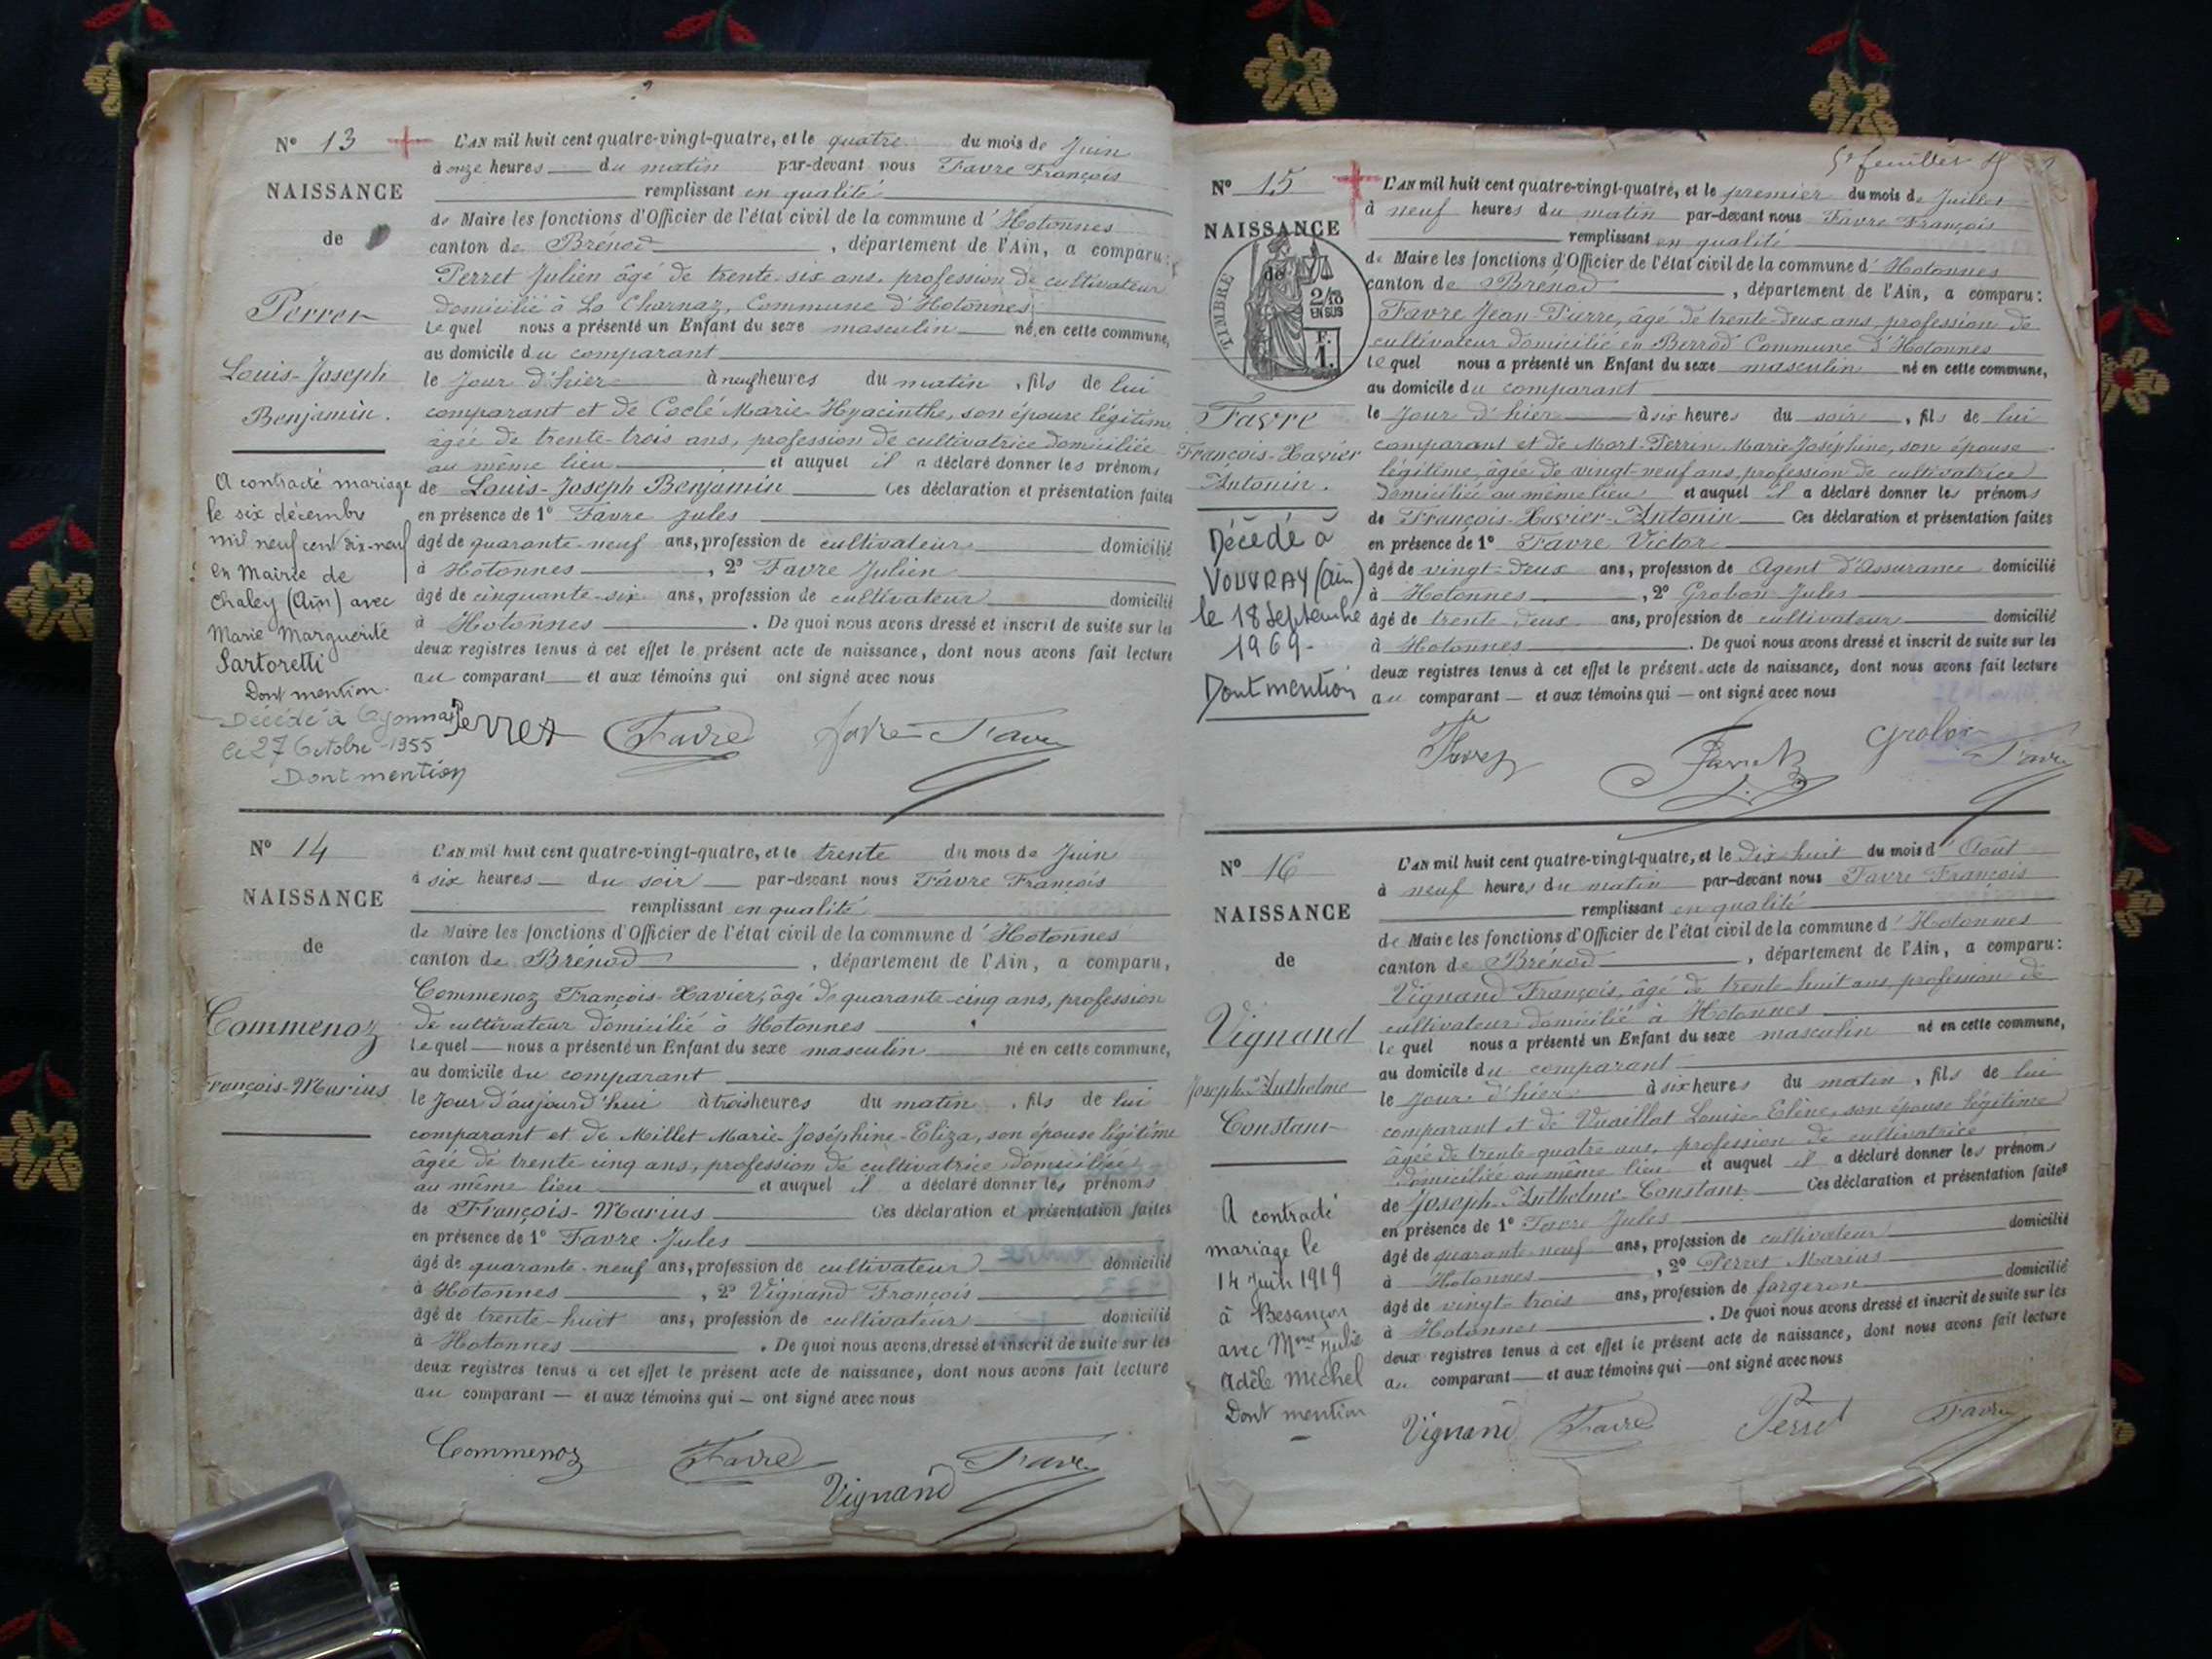 N° 13
NAISSANCE
de
Perret
Louis-Joseph
Benjamin.
A contracté mariage
le six décembre
mil neuf cent dix-neuf
en Mairie de
Chaley (Ain) avec
Marie Marguerite
Sartoretti
Dont mention.
Décédé à Oyonnax
le 27 Octobre 1955
Dont mention
L'AN mil huit cent quatre-vingt-quatre, et le quatre du mois de Juin
à onze heures du matin par-devant nous Favre François
remplissant en qualité
de Maire les fonctions d'Officier de l'état civil de la commune d'Hotonnes
canton de Brénod, département de l'Ain, a comparu:
Perret Julien âgé de trente-six ans, profession de cultivateur
domicilié à La Charnaz, Commune d'Hotonnes
lequel nous a présenté un Enfant du sexe masculin né, en cette commune,
au domicile du comparant
le jour d'hier à neuf heures du matin, fils de lui
comparant et de Coclé Marie-Hyacinthe, son épouse légitime
âgée de trente-trois ans, profession de cultivatrice domiciliée
au même lieu et auquel il a déclaré donner les prénoms
de Louis-Joseph Benjamin Ces déclaration et présentation faites
en présence de 1° Favre Jules
âgé de quarante-neuf ans, profession de cultivateur domicilié
à Hotonnes, 2° Favre Julien
âgé de cinquante-six ans, profession de cultivateur domicilié
à Hotonnes. De quoi nous avons dressé et inscrit de suite sur les
deux registres tenus à cet effet le présent acte de naissance, dont nous avons fait lecture
au comparant et aux témoins qui ont signé avec nous
Perret Favre Favre Favre
N° 14
NAISSANCE
de
Commenoz
François-Marius
L'AN mil huit cent quatre-vingt-quatre, et le trente du mois de Juin
à six heures du soir par-devant nous Favre François
remplissant en qualité
de Maire les fonctions d'Officier de l'état civil de la commune d'Hotonnes
canton de Brénod, département de l'Ain, a comparu,
Commenoz François-Xavier, âgé de quarante-cinq ans, profession
de cultivateur domicilié à Hotonnes
lequel nous a présenté un Enfant du sexe masculin né en cette commune,
au domicile du comparant
le jour d'aujourd'hui à trois heures du matin, fils de lui
comparant et de Millet Marie-Joséphine-Eliza, son épouse légitime
âgée de trente cinq ans, profession de cultivatrice domiciliée
au même lieu et auquel il a déclaré donner les prénoms
de François-Marius Ces déclaration et présentation faites
en présence de 1° Favre Jules
âgé de quarante-neuf ans, profession de cultivateur domicilié
à Hotonnes, 2° Vignand François
âgé de trente-huit ans, profession de cultivateur domicilié
à Hotonnes. De quoi nous avons dressé et inscrit de suite sur les
deux registres tenus à cet effet le présent acte de naissance, dont nous avons fait lecture
au comparant — et aux témoins qui — ont signé avec nous
Commenoz Favre Vignand Favre
5e feuillet
N° 15
NAISSANCE
de
TIMBRE
2/10
EN SUS
F.
1.
Favre
François-Xavier
Antonin.
Décédé à
VOUVRAY (Ain)
le 18 Septembre
1969-
Dont mention
L'AN mil huit cent quatre-vingt-quatre, et le premier du mois de Juillet
à neuf heures du matin par-devant nous Favre François
remplissant en qualité
de Maire les fonctions d'Officier de l'état civil de la commune d'Hotonnes
canton de Brénod, département de l'Ain, a comparu:
Favre Jean-Pierre, âgé de trente-deux ans, profession de
cultivateur domicilié en Berrod Commune d'Hotonnes
lequel nous a présenté un Enfant du sexe masculin né en cette commune,
au domicile du comparant
le jour d'hier à six heures du soir, fils de lui
comparant et de Mort-Perrin Marie Joséphine, son épouse
légitime, âgée de vingt-neuf ans, profession de cultivatrice
domiciliée au même lieu et auquel il a déclaré donner les prénoms
de François-Xavier-Antonin Ces déclaration et présentation faites
en présence de 1° Favre Victor
âgé de vingt-deux ans, profession de Agent d'Assurance domicilié
à Hotonnes, 2° Grobon Jules
âgé de trente-deux ans, profession de cultivateur domicilié
à Hotonnes. De quoi nous avons dressé et inscrit de suite sur les
deux registres tenus à cet effet le présent acte de naissance, dont nous avons fait lecture
au comparant — et aux témoins qui — ont signé avec nous
Grobon Favre
N° 16
NAISSANCE
de
Vignand
Joseph-Anthelme
Constant
A contracté
mariage le
14 Juin 1919
à Besançon
avec Mme Julie
Adèle Michel
Dont mention
L'AN mil huit cent quatre-vingt-quatre, et le dix huit du mois d'Août
à neuf heures du matin par-devant nous Favre François
remplissant en qualité
de Maire les fonctions d'Officier de l'état civil de la commune d'Hotonnes
canton de Brénod, département de l'Ain, a comparu:
Vignand François, âgé de trente-huit ans, profession de
cultivateur domicilié à Hotonnes
lequel nous a présenté un Enfant du sexe masculin né en cette commune,
au domicile du comparant
le jour d'hier à six heures du matin, fils de lui
comparant et de Vuaillat Louise-Elène, son épouse légitime
âgée de trente quatre ans, profession de cultivatrice
domiciliée au même lieu et auquel il a déclaré donner les prénoms
de Joseph-Anthelme-Constant Ces déclaration et présentation faites
en présence de 1° Favre Jules
âgé de quarante-neuf ans, profession de cultivateur domicilié
à Hotonnes, 2° Perret Marius
âgé de vingt-trois ans, profession de forgeron domicilié
à Hotonnes. De quoi nous avons dressé et inscrit de suite sur les
deux registres tenus à cet effet le présent acte de naissance, dont nous avons fait lecture
au comparant — et aux témoins qui — ont signé avec nous
Vignand Favre Perret Favre